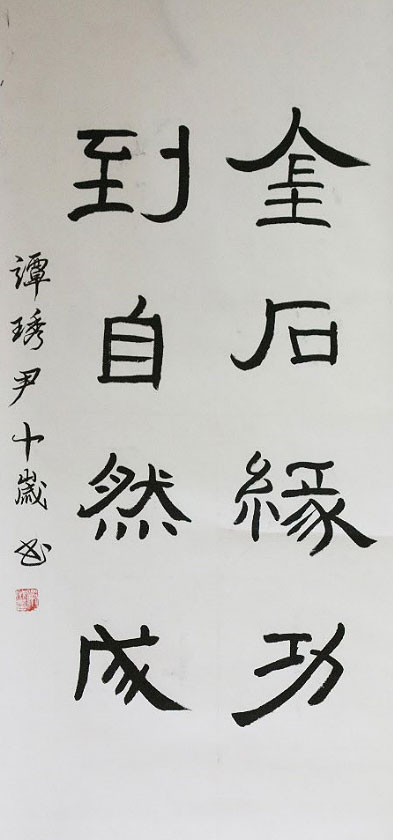 金石緣功
到自然成
譚琇尹十歲书